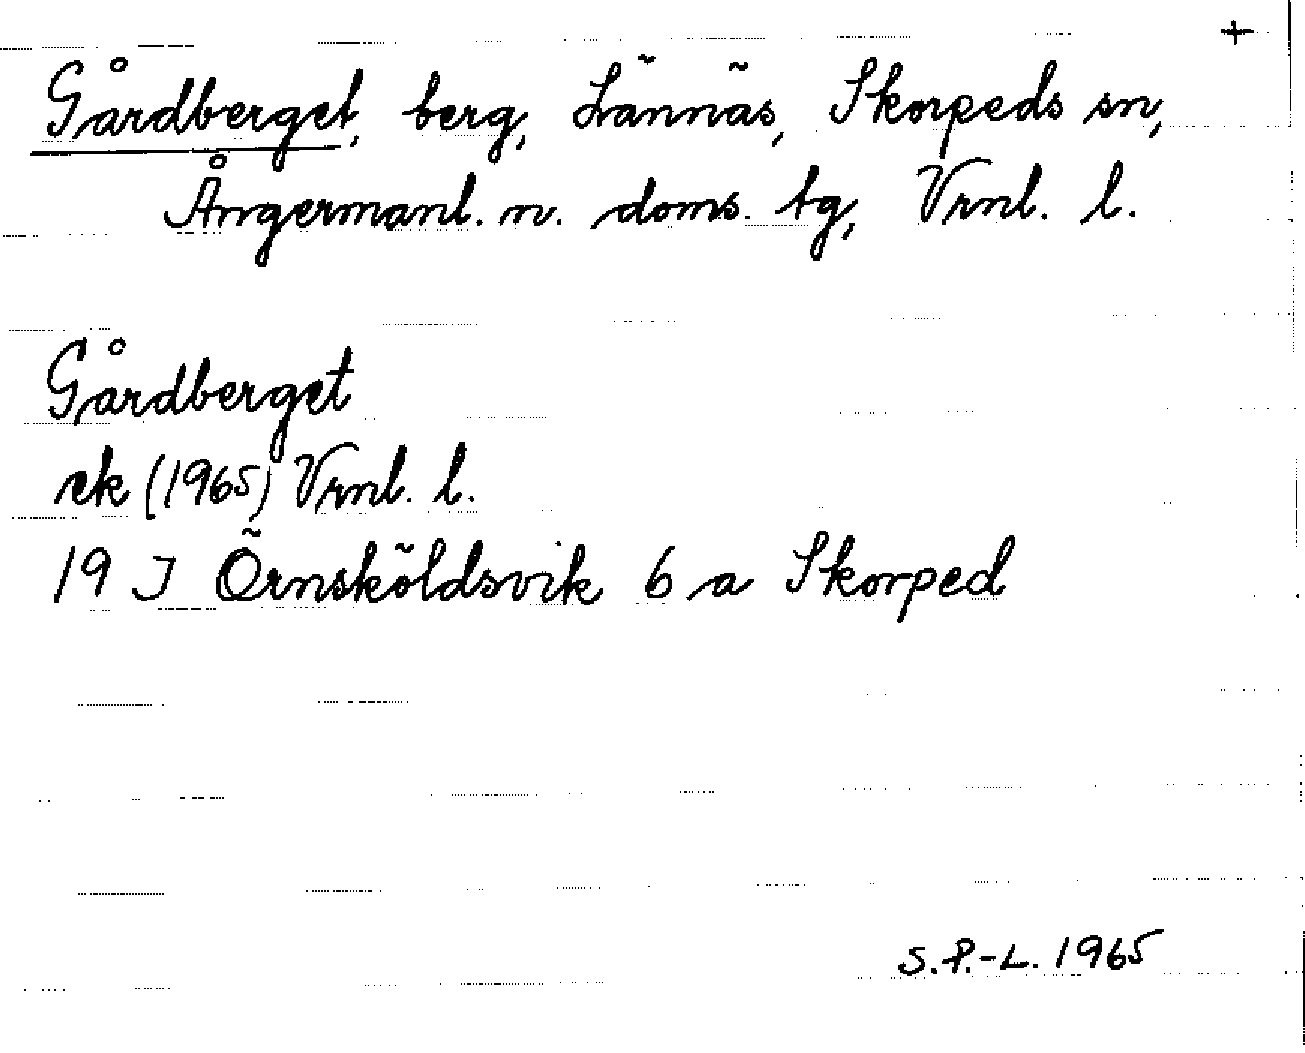 +
Gårdberget, berg, Lännäs, Skorpeds sn,
Ångermanl. n. doms. tg, Vrnl. l.
Gårdberget
ek (1965) Vrnl. l.
19 I Örnsköldsvik 6 a Skorped
S.P.-L. 1965